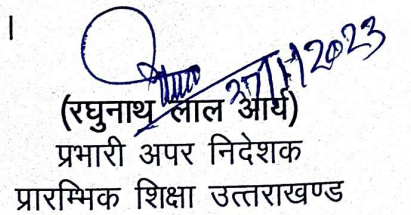 ।
(रघुनाथ लाल आर्य)
प्रभारी अपर निदेशक
प्रारम्भिक शिक्षा उत्तराखण्ड